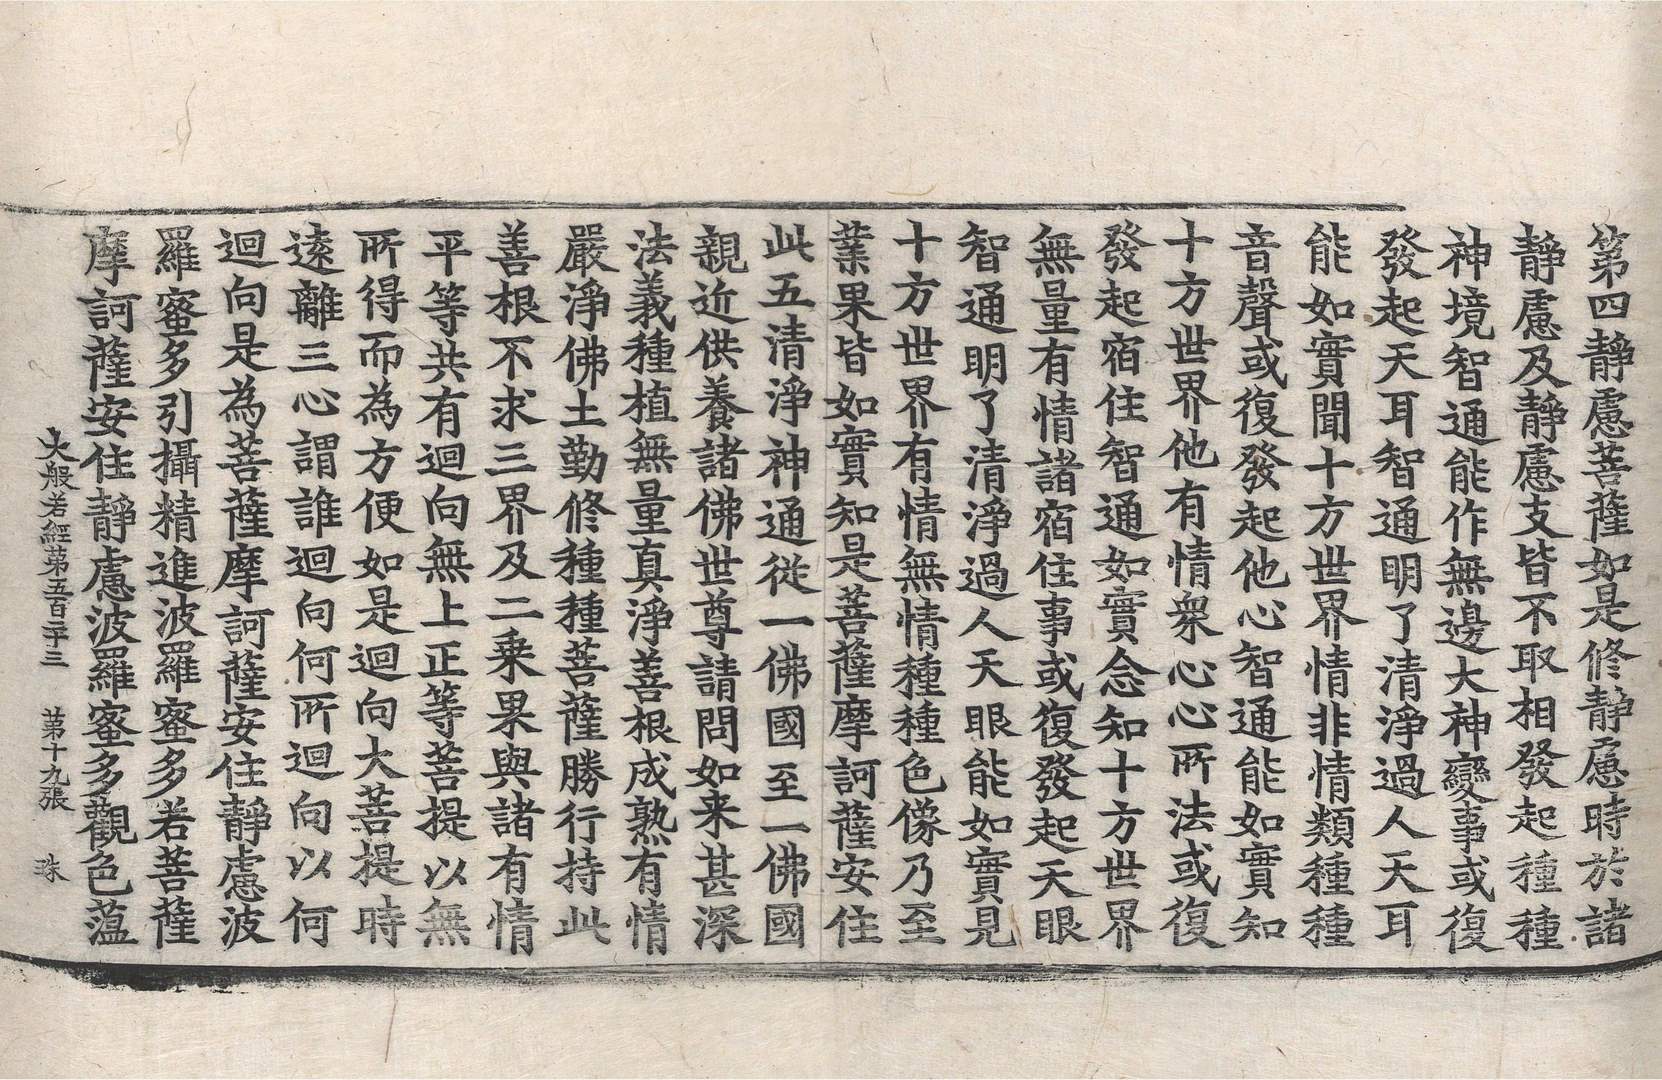 第四靜慮菩薩如是修靜慮時於諸
靜慮及靜慮支皆不取相發起種種
神境智通能作無邊大神變事或復
發起天耳智通明了清淨過人天耳
能如實聞十方世界情非情類種種
音聲或復發起他心智通能如實知
十方世界他有情衆心心所法或復
發起宿住智通如實念知十方世界
無量有情諸宿住事或復發起天眼
智通明了清淨過人天眼能如實見
十方世界有情無情種種色像乃至
業果皆如實知是菩薩摩訶薩安住
此五清淨神通從一佛國至一佛國
親近供養諸佛世尊請問如来甚深
法義種植無量真淨善根成熟有情
嚴淨佛土勤修種種菩薩勝行持此
善根不求三界及二乗果與諸有情
平等共有迴向無上正等菩提以無
所得而為方便如是迴向大菩提時
遠離三心謂誰迴向何所迴向以何
迴向是為菩薩摩訶薩安住靜慮波
羅蜜多引攝精進波羅蜜多若菩薩
摩訶薩安住靜慮波羅蜜多觀色蘊
大般若經第五百二十三 第十九張 珠